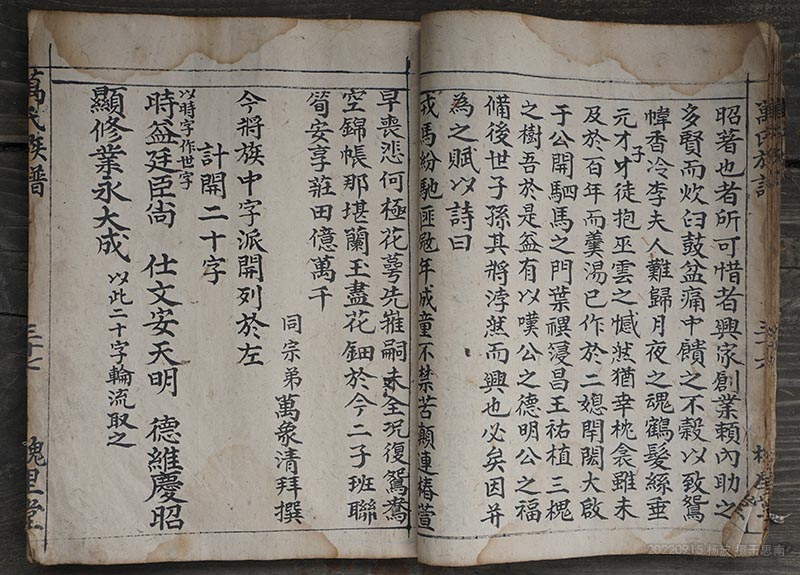 萬氏族譜
昭著也者所可惜者興家創業賴內助之
多賢而炊臼鼓盆痛中饋之不穀以致鴛
幃香冷李夫人難歸月夜之魂鶴髮絲垂
元才子才徒抱巫雲之憾然猶幸枕衾雖未
及於百年而羹湯已作於二媳閈閎大啟
于公開駟馬之門葉禩寖昌王祐植三槐
之樹吾於是益有以嘆公之德明公之福
備後世子孫其將浡然而興也必矣因并
為之賦以詩曰
戎馬紛馳匪戢年成童不禁苦顛連椿萱
早喪悲何極花萼先摧嗣未全況復鴛鴦
空錦帳那堪蘭玉盡花鈿於今二子班聯
筍安享莊田億萬千
同宗弟萬象清拜撰
今將族中字派開列於左
計開二十字
以時字作世字
時益廷臣尙 仕文安天明 德維慶昭
顯修業永大成 以此二十字輪流取之
萬氏族譜
三十七
槐里堂
20220915 杨波 摄于思南